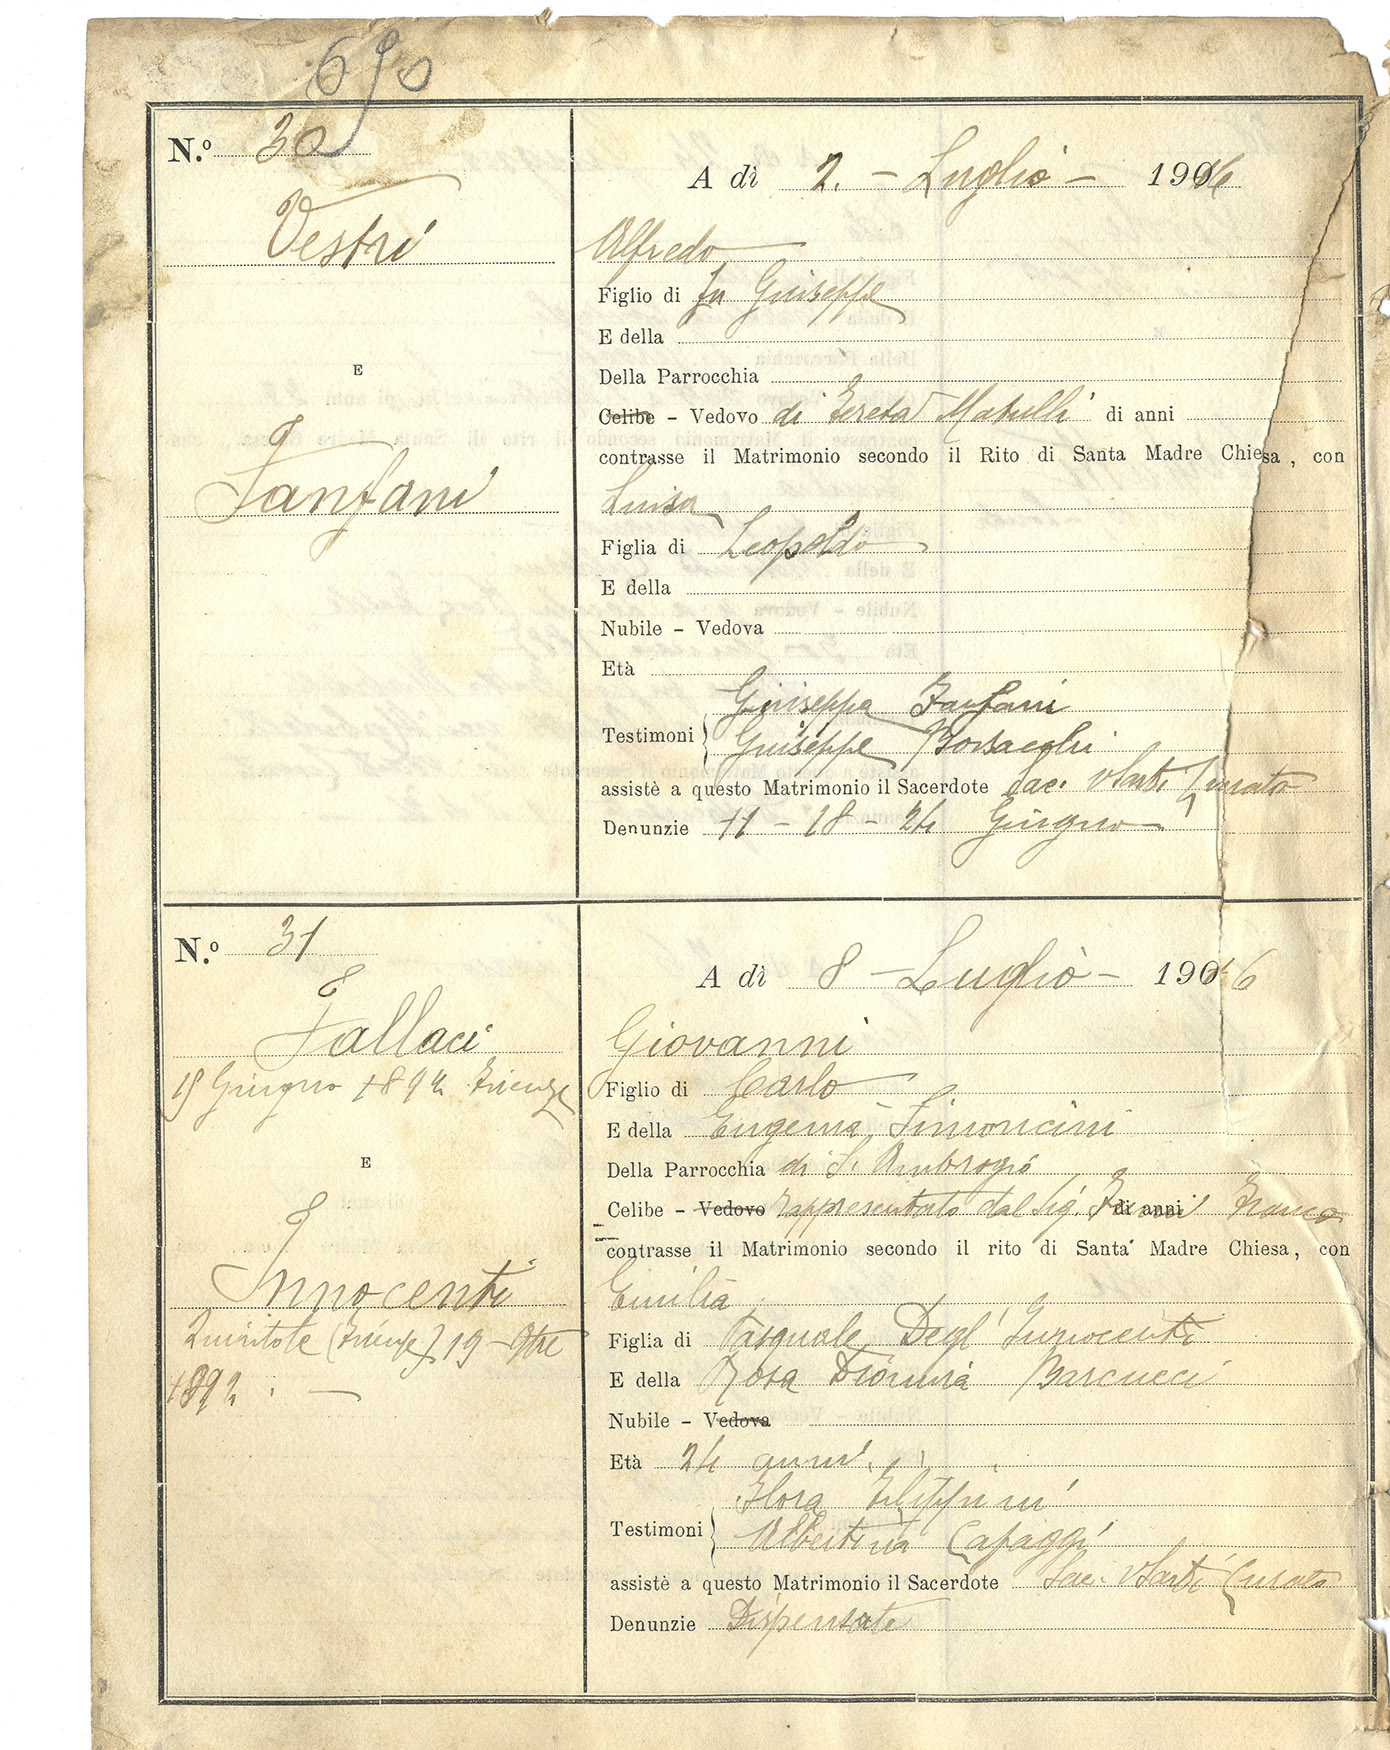 690
N.º 30
A dì 2. - Luglio - 1916
Vestri
Alfredo
Figlio di fu Giuseppe
E della
Della Parrocchia
E
Celibe - Vedovo di Teresa Matulli di anni
contrasse il Matrimonio secondo il Rito di Santa Madre Chiesa, con
Fanfani
Luisa
Figlia di Leopoldo
E della
Nubile - Vedova
Età
Giuseppa Fanfani
Testimoni
Giuseppe
assistè a questo Matrimonio il Sacerdote Sac. Sarti Curato
Denunzie 11 - 18 - 24 Giugno
N.º 31
A dì 8 - Luglio - 1916
Fallaci
Giovanni
Giugno 1892 Firenze
Figlio di Carlo
E della Eugenia Simoncini
E
Della Parrocchia di S. Ambrogio
Celibe - Vedovo rappresentato dal Sig. di anni Franco
contrasse il Matrimonio secondo il rito di Santa Madre Chiesa, con
Innocenti
Emilia
Quintole (Firenze) 19 - 9bre
Figlia di Pasquale Degl' Innocenti
1892. -
E della Rosa Dionira Barcucci
Nubile - Vedova
Età 24 anni.
Flora Filippini
Testimoni
Albertina Cafaggi
assistè a questo Matrimonio il Sacerdote Sac. Sarti Curato
Denunzie Dispensate